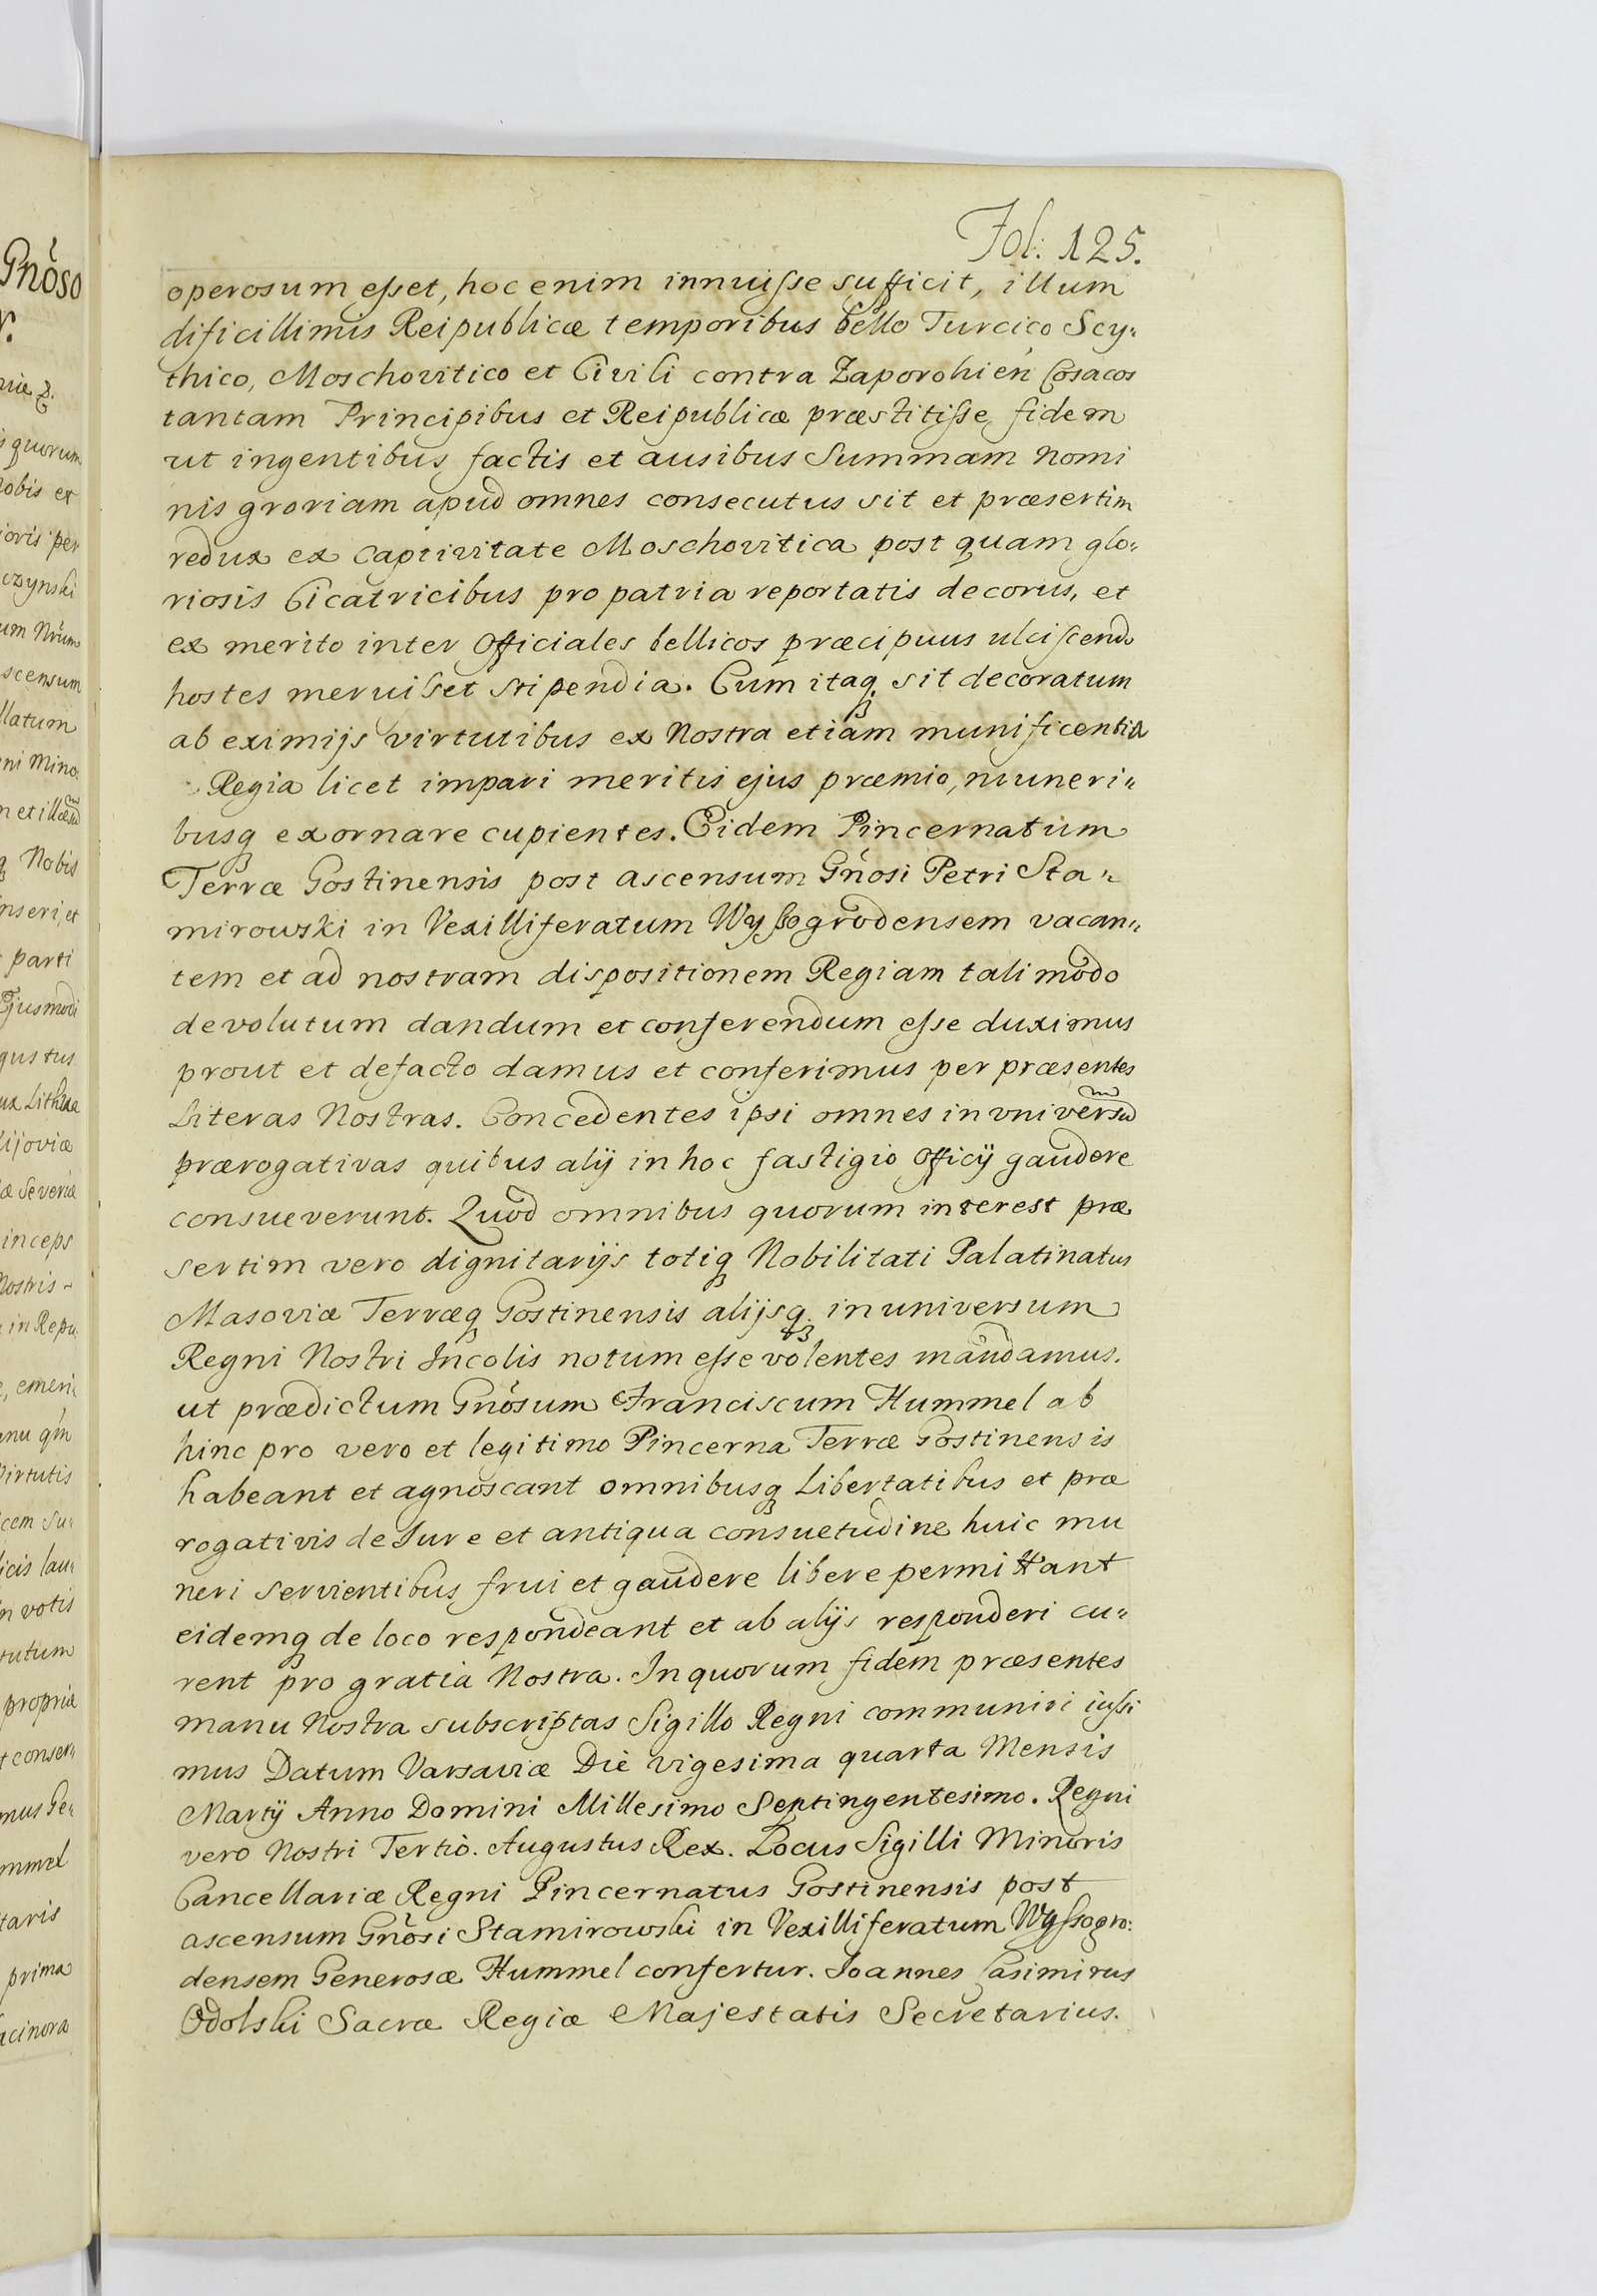 Fol: 125.
operosum esset, hoc enim innuisse sufficit, illum
dificillimis Reipublicæ temporibus bello Turcico Scy„
thico, Moschovitico et Civili contra Zaporohień Cosacos
tantam Principibus et Reipublicæ præstitisse, fidem
ut ingentibus factis et ausibus Summam nomi
nis groriam apud omnes consecutus sit et præsertim
redux ex captivitate Moschovitica post quam glo„
riosis Cicatricibus pro patria reportatis decorus, et
ex merito inter Officiales bellicos præcipuus ulciscendo
hostes meruisset stipendia. Cum itaq₃ sit decoratum
ab eximijs virtutibus ex Nostra etiam munificentia
Regia licet impari meritis ejus præmio, muneri„
busq₃ exornare cupientes. Eidem Pincernatum
Terræ Gostinensis post ascensum Gńosi Petri Sta„
mirowski in Vexilliferatum Wyssogrodensem vacan„
tem et ad nostram dispositionem Regiam tali modo
devolutum dandum et conferendum esse duximus
prout et defacto damus et conferimus per præsentes
Literas Nostras. Concedentes ipsi omnes in vniversũ
prærogativas quibus alij in hoc fastigio officij gaudere
consueverunt. Quod omnibus quorum interest præ
sertim vero dignitarijs totiq₃ Nobilitati Palatinatus
Masoviæ Terræq₃ Gostinensis alijsq₃ in universum
Regni Nostri Incolis notum esse volentes mandamus.
ut prædictum Gnõsum Franciscum Hummel ab
hinc pro vero et legitimo Pincerna Terræ Gostinensis
habeant et agnoscant omnibusq₃ Libertatibus et præ
rogativis de Iure et antiqua consuetudine huic mu
neri servientibus frui et gaudere libere permittant
eidemq₃ de loco respondeant et ab alijs responderi cu„
rent pro gratia Nostra. In quorum fidem præsentes
manu Nostra subscriptas Sigillo Regni communiri iussi
mus Datum Varsaviæ Die vigesima quarta Mensis
Martij Anno Domini Millesimo Septingentesimo. Regni
vero Nostri Tertio. Augustus Rex. Locus Sigilli Minoris
Cancellariæ Regni Pincernatus Gostinensis post
ascensum Gnõsi Stamirowski in Vexilliferatum Wyssogro:
densem Generosæ Hummel confertur. Joannes Casimirus
Odolski Sacræ Regiæ Majestatis Secretarius.